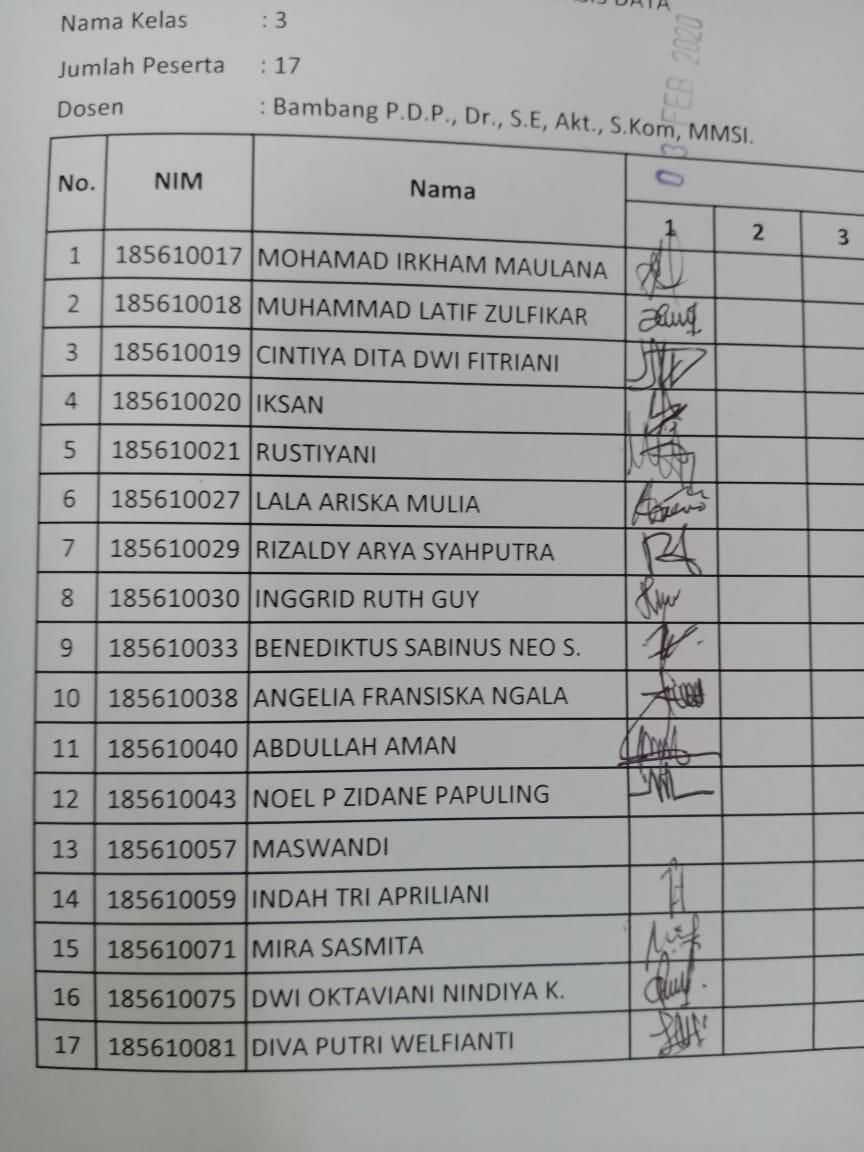 DATA
Nama Kelas : 3
Jumlah Peserta : 17
Dosen : Bambang P.D.P., Dr., S.E, Akt., S.Kom, MMSI.
03 FEB 2020
No. NIM Nama
1 2 3
1 185610017 MOHAMAD IRKHAM MAULANA
2 185610018 MUHAMMAD LATIF ZULFIKAR
3 185610019 CINTIYA DITA DWI FITRIANI
4 185610020 IKSAN
5 185610021 RUSTIYANI
6 185610027 LALA ARISKA MULIA
7 185610029 RIZALDY ARYA SYAHPUTRA
8 185610030 INGGRID RUTH GUY
9 185610033 BENEDIKTUS SABINUS NEO S.
10 185610038 ANGELIA FRANSISKA NGALA
11 185610040 ABDULLAH AMAN
12 185610043 NOEL P ZIDANE PAPULING
13 185610057 MASWANDI
14 185610059 INDAH TRI APRILIANI
15 185610071 MIRA SASMITA
16 185610075 DWI OKTAVIANI NINDIYA K.
17 185610081 DIVA PUTRI WELFIANTI